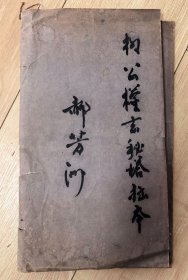 柳公權玄秘塔拓本
郝芳洲